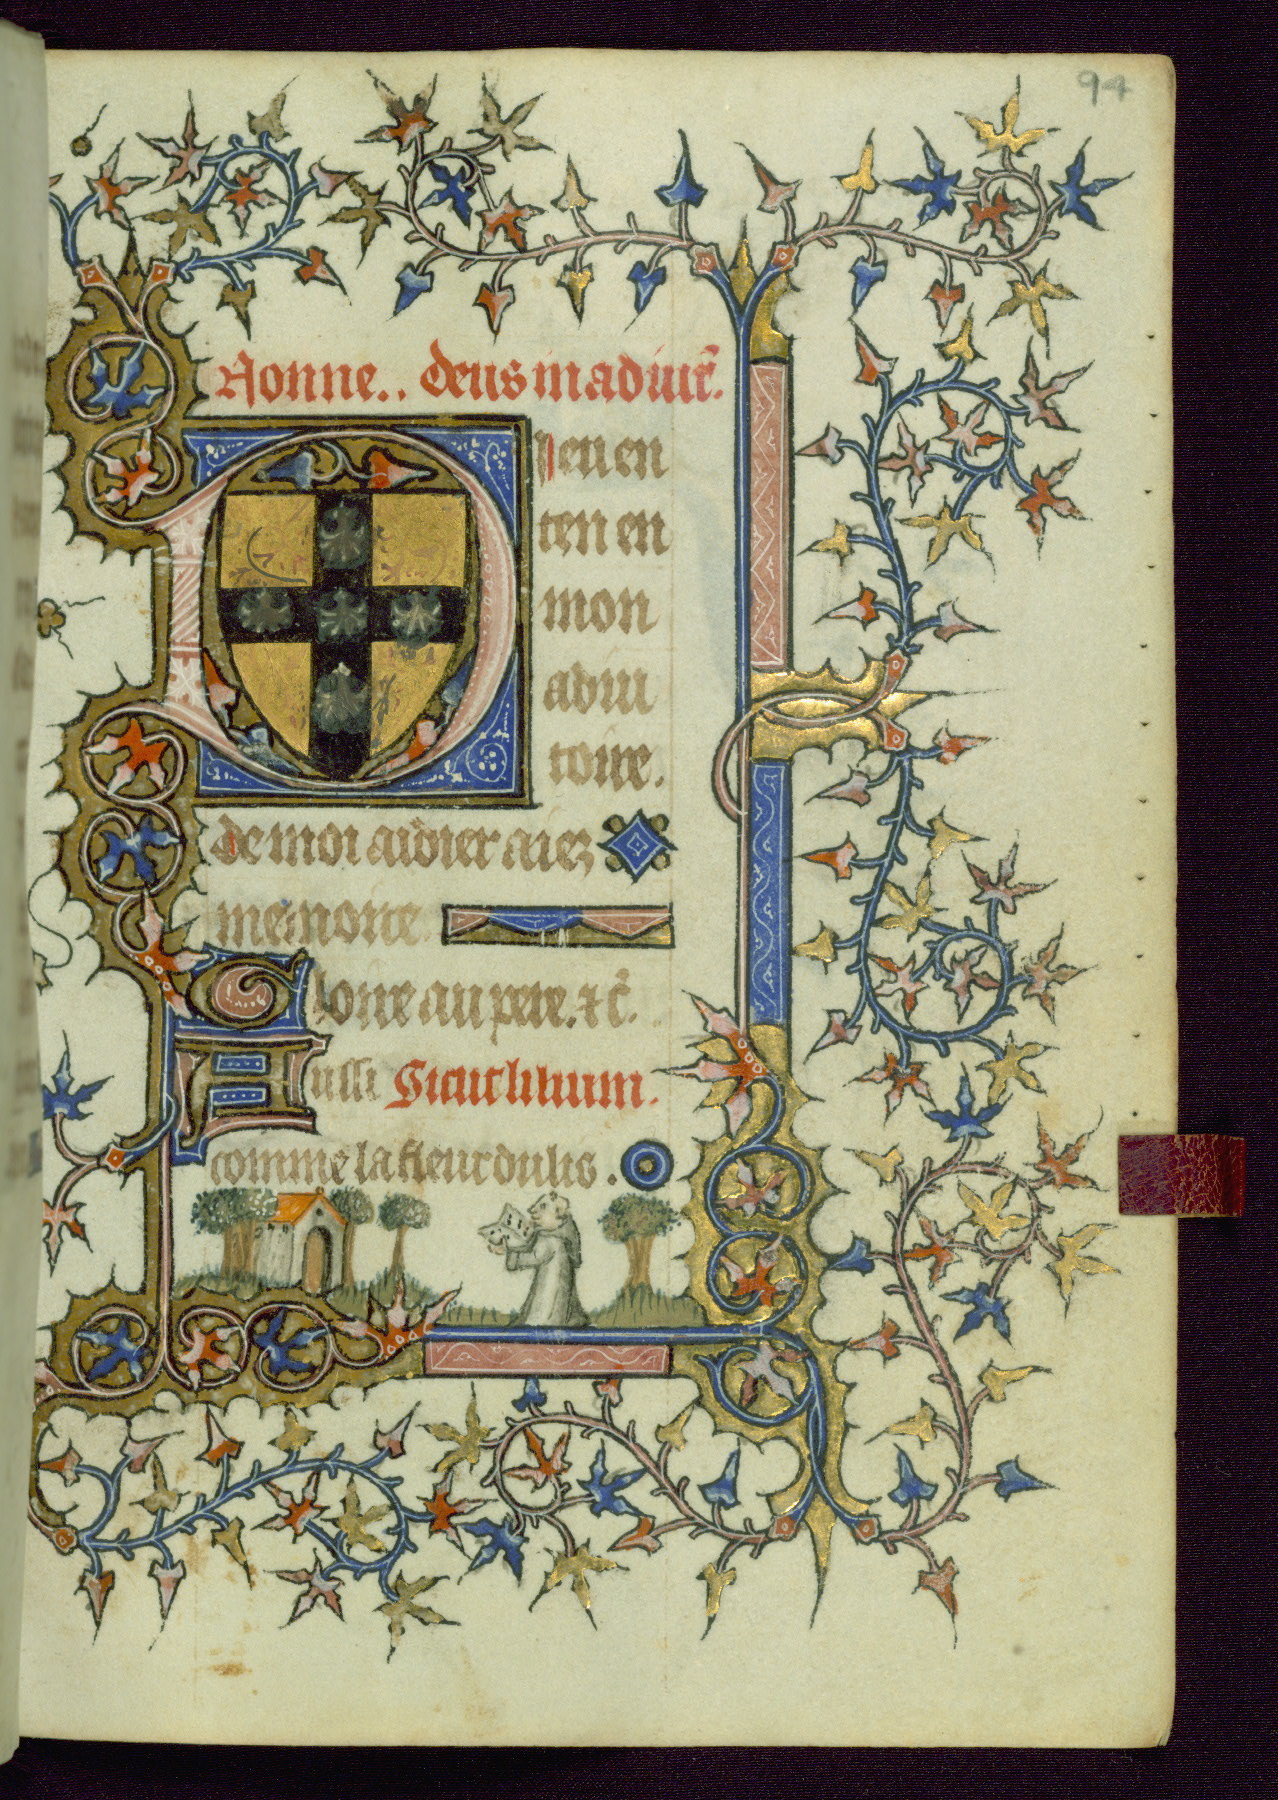 94
A nonne.. deus in adiut̃.
Deu en
ten en
mon
adiu
toire.
de moi aidier aiez
memoire.
Gloire au pere. ⁊ c̃.
Aussi Sicut lilium.
comme la fleur du lis.